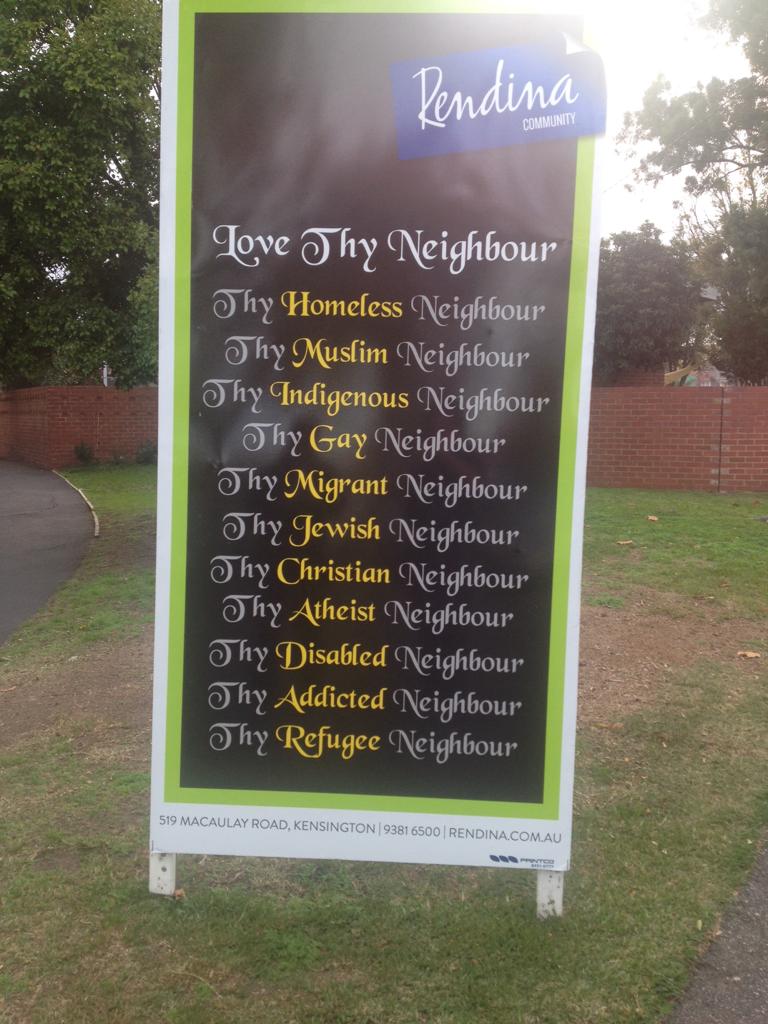 Rendina
COMMUNITY
Love Thy Neighbour
Thy Homeless Neighbour
Thy Muslim Neighbour
Thy Indigenous Neighbour
Thy Gay Neighbour
Thy Migrant Neighbour
Thy Jewish Neighbour
Thy Christian Neighbour
Thy Atheist Neighbour
Thy Disabled Neighbour
Thy Addicted Neighbour
Thy Refugee Neighbour
519 MACAULAY ROAD, KENSINGTON | 9381 6500 | RENDINA.COM.AU
PRINTCO